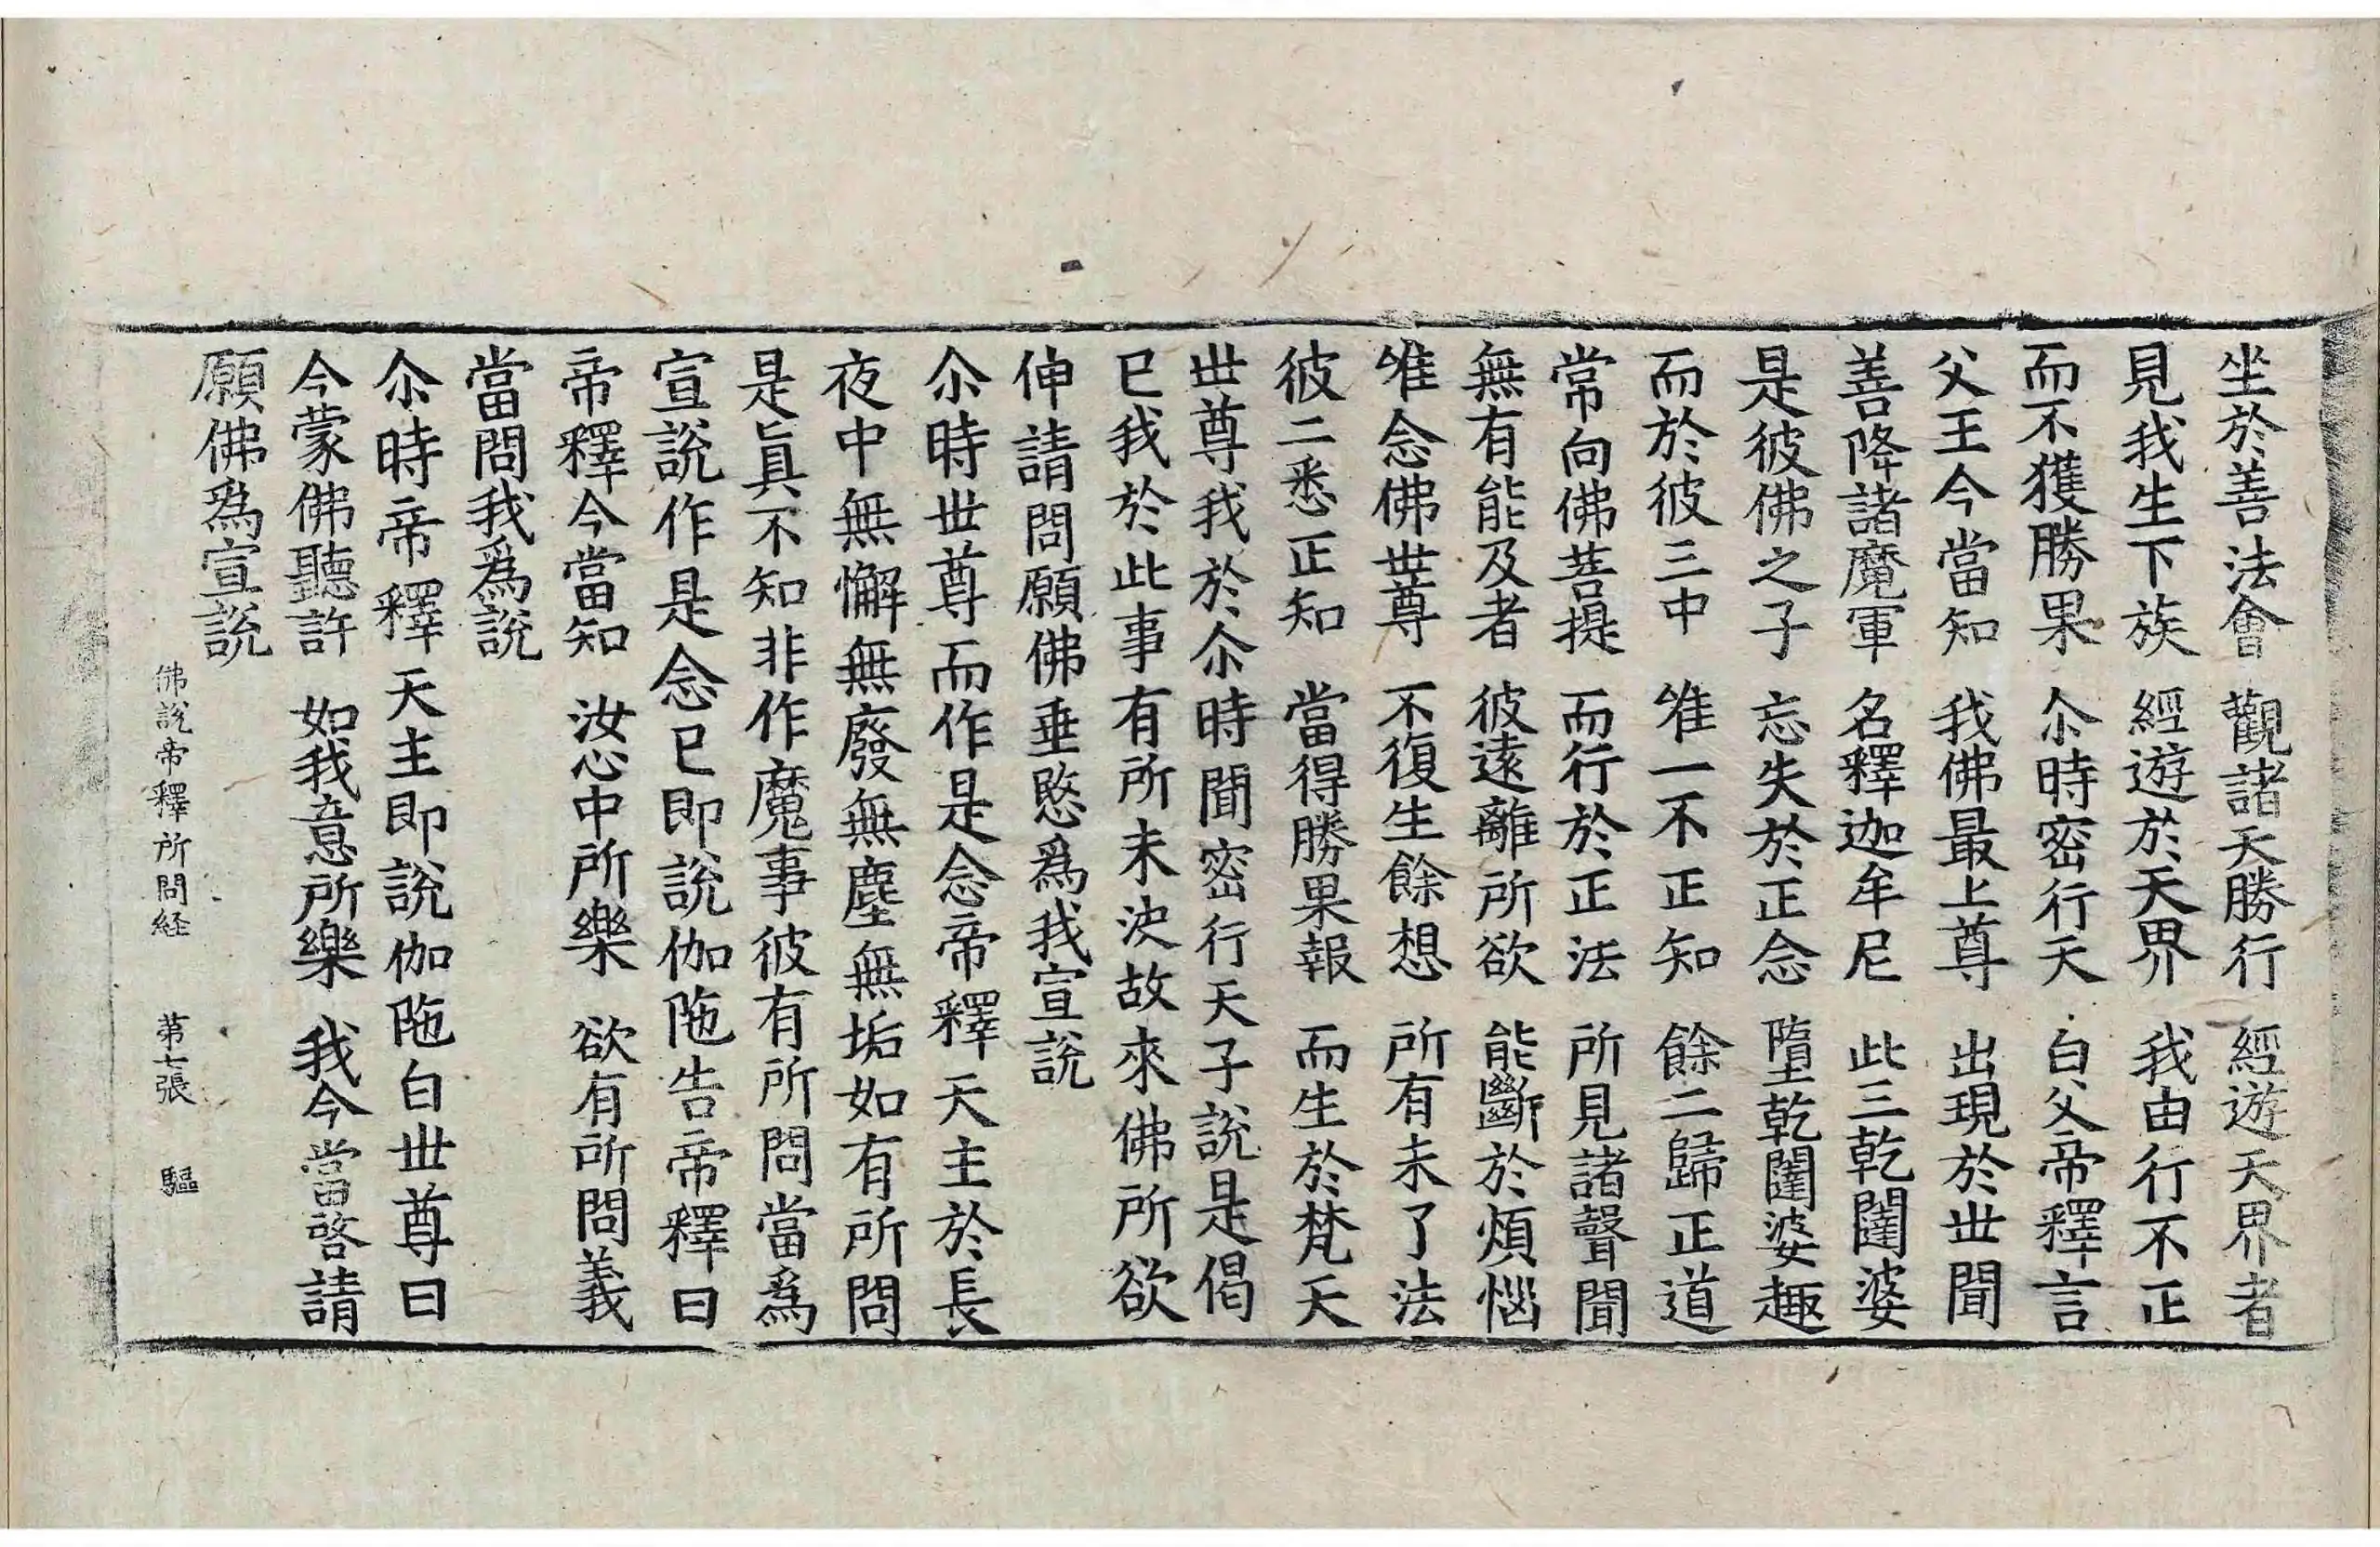 坐於善法會　觀諸天勝行　經遊天界者
見我生下族　經遊於天界　我由行不正
而不獲勝果　尒時密行天　白父帝釋言
父王今當知　我佛最上尊　出現於世間
善降諸魔軍　名釋迦牟尼　此三乾闥婆
是彼佛之子　忘失於正念　墮乾闥婆趣
而於彼三中　唯一不正知　餘二歸正道
常向佛菩提　而行於正法　所見諸聲聞
無有能及者　彼遠離所欲　能斷於煩惱
唯念佛世尊　不復生餘想　所有未了法
彼二悉正知　當得勝果報　而生於梵天
世尊我於尒時聞密行天子說是偈
已我於此事有所未決故來佛所欲
伸請問願佛垂愍爲我宣說
尒時世尊而作是念帝釋天主於長
夜中無懈無廢無塵無垢如有所問
是眞不知非作魔事彼有所問當爲
宣說作是念已即說伽陁告帝釋曰
帝釋今當知　汝心中所樂　欲有所問義
當問我爲說
尒時帝釋天主即說伽陁白世尊曰
今蒙佛聽許　如我意所樂　我今當啓請
願佛爲宣說
佛說帝釋所問経　第七張　驅